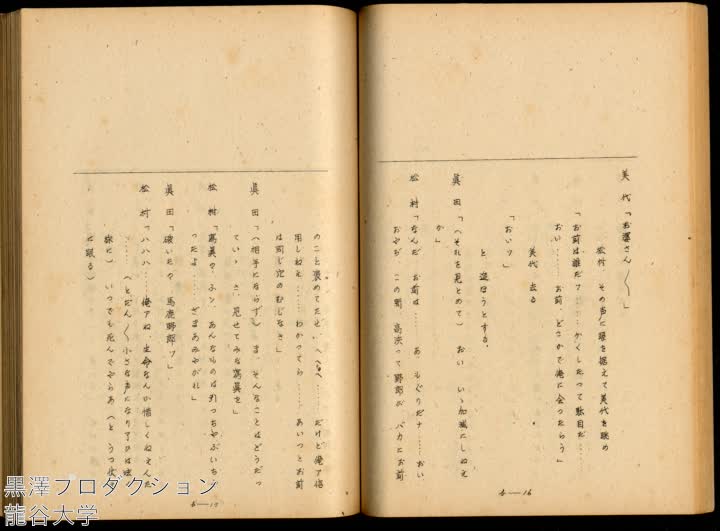 美代「お婆さん〱」
松村 その声に眼を据えて美代を眺め
「お前は誰だッ……かくしたって駄目だ……
おい……お前、どこかで俺に会ったらう」
美代 去る
「おいッ」
と 追はうとする。
眞田「(それを見とめて) おい いゝ加減にしねえ
か」
松村「なんだ お前は…… あ もぐりだナ…… おい
おやぢ この間 高浜って野郎が バカにお前
のこと褒めてたぜ へへへ だけど俺ァ信
用しねえ…… わかってら…… あいつとお前
は同じ穴のむじなさ」
眞田「(相手にならず) ま、そんなことはどうだっ
ていゝさ、見せてみな寫眞を」
松村「寫眞? フン、あんなものは引っちゃぶいち
ったよ…… ざまあみやがれ」
眞田「破いた? 馬鹿野郎ッ」
松村「ハハハ…… 俺アね、生命なんか惜しくねえんた
…… (とだん〱小さな声になり
に) いつでも死んでやらあ (と うつ伏
に眠る)
5—16
5—17
黒澤プロダクション
龍谷大学